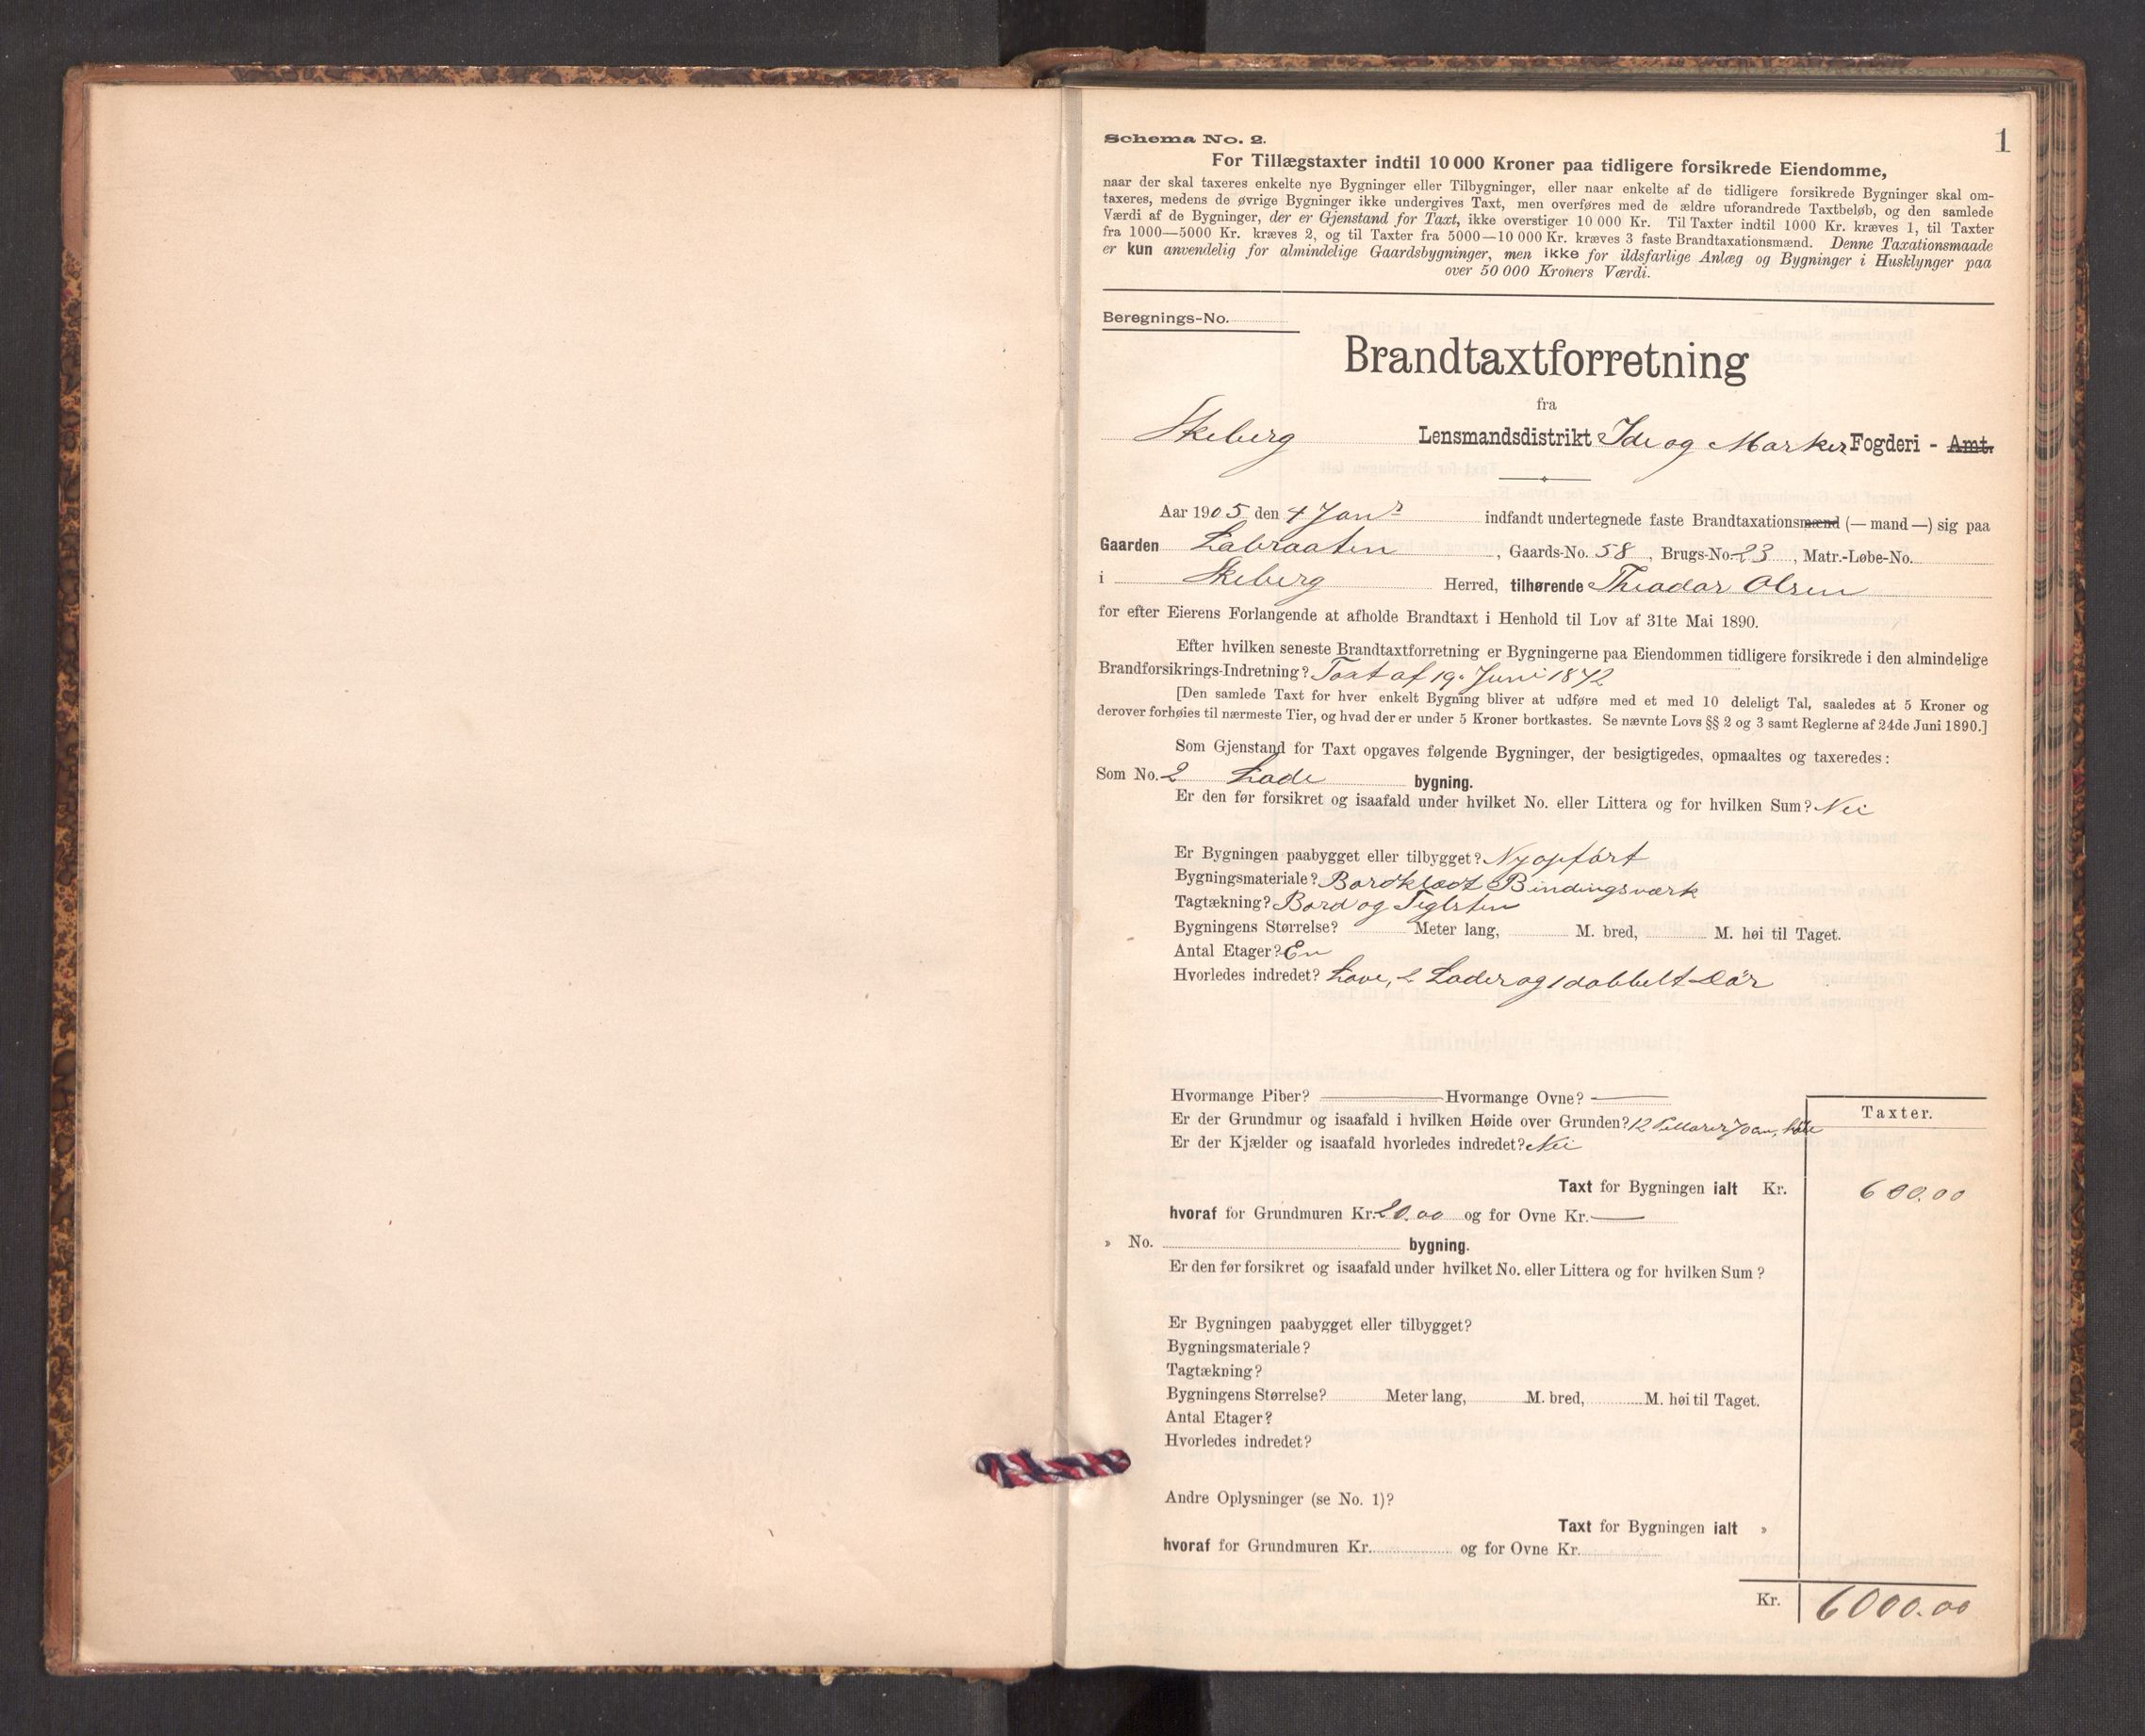 1
Schema No. 2.
For Tillægstaxter indtil 10 000 Kroner paa tidligere forsikrede Eiendomme,
naar der skal taxeres enkelte nye Bygninger eller Tilbygninger, eller naar enkelte af de tidligere forsikrede Bygninger skal om-
taxeres, medens de øvrige Bygninger ikke undergives Taxt, men overføres med de ældre uforandrede Taxtbeløb, og den samlede
Værdi af de Bygninger, der er Gjenstand for Taxt, ikke overstiger 10 000 Kr. Til Taxter indtil 1000 Kr. kræves 1, til Taxter
fra 1000—5000 Kr. kræves 2, og til Taxter fra 5000—10 000 Kr. kræves 3 faste Brandtaxationsmænd. Denne Taxationsmaade
er kun anvendelig for almindelige Gaardsbygninger, men ikke for ildsfarlige Anlæg og Bygninger i Husklynger paa
over 50 000 Kroners Værdi.
Beregnings-No.
Brandtaxtforretning
fra
Skeberg Lensmandsdistrikt Ide og Marker Fogderi - Amt.
Aar 1905 den 4 Janr indfandt undertegnede faste Brandtaxationsmænd (— mand —) sig paa
Gaarden Labraaten, Gaards-No. 58, Brugs-No. 23, Matr.-Løbe-No.
i Skeberg Herred, tilhørende Theodor Olsen
for efter Eierens Forlangende at afholde Brandtaxt i Henhold til Lov af 31te Mai 1890.
Efter hvilken seneste Brandtaxtforretning er Bygningerne paa Eiendommen tidligere forsikrede i den almindelige
Brandforsikrings-Indretning? Taxt af 19. Juni 1872
[Den samlede Taxt for hver enkelt Bygning bliver at udføre med et med 10 deleligt Tal, saaledes at 5 Kroner og
derover forhøies til nærmeste Tier, og hvad der er under 5 Kroner bortkastes. Se nævnte Lovs §§ 2 og 3 samt Reglerne af 24de Juni 1890.]
Som Gjenstand for Taxt opgaves følgende Bygninger, der besigtigedes, opmaaltes og taxeredes:
Som No. 2 Lade bygning.
Er den før forsikret og isaafald under hvilket No. eller Littera og for hvilken Sum? Nei
Er Bygningen paabygget eller tilbygget? Nyopført
Bygningsmateriale? Bordklædt Bindingsværk
Tagtækning? Bord og Teglsten
Bygningens Størrelse? Meter lang, M. bred, M. høi til Taget.
Antal Etager? En
Hvorledes indredet? Lave, 2 Lader og 1 dobbelt Dør
Hvormange Piber? — Hvormange Ovne? —
Taxter.
Er der Grundmur og isaafald i hvilken Høide over Grunden? 12 Pillarer 70 cm. høie
Er der Kjælder og isaafald hvorledes indredet? Nei
Taxt for Bygningen ialt Kr. 600.00
hvoraf for Grundmuren Kr. 20.00 og for Ovne Kr. —
» No. bygning.
Er den før forsikret og isaafald under hvilket No. eller Littera og for hvilken Sum?
Er Bygningen paabygget eller tilbygget?
Bygningsmateriale?
Tagtækning?
Bygningens Størrelse? Meter lang, M. bred, M. høi til Taget.
Antal Etager?
Hvorledes indredet?
Andre Oplysninger (se No. 1)?
Taxt for Bygningen ialt »
hvoraf for Grundmuren Kr. og for Ovne Kr.
Kr. 6000.00